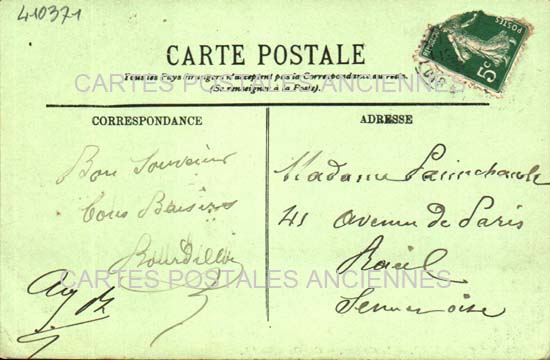 410371
POSTES
5c
CARTE POSTALE
Tous les Pays étrangers n'acceptent pas la Correspondance au recto.
(Se renseigner à la Poste).
CARTES POSTALES ANCIENNES
CORRESPONDANCE
Bon Souvenir
Bons Baisers
ADRESSE
Madame
41 avenue de Paris
CARTES POSTALES ANCIENNES